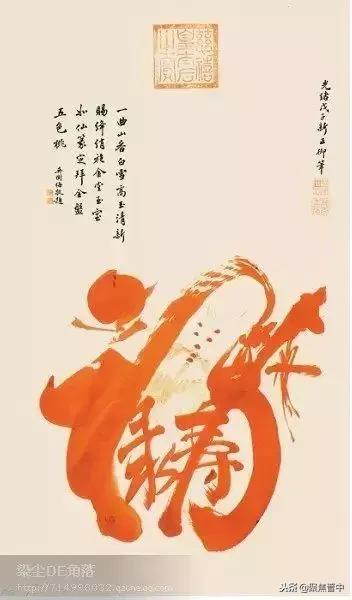 慈禧皇太后之寶
光緒戊子新正御筆
一曲山香白雪高玉清新
賜絳綃袍金堂玉室
如仙篆定拜金盤
五色桃
福
祿壽
染尘DE角落
http://714998032.qzone.qq.com
头条 @聚焦晋中